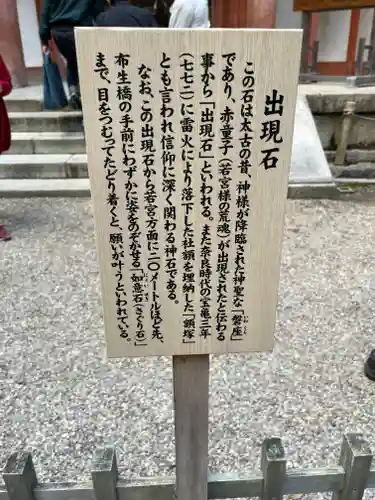 出現石
この石は太古の昔、神様が降臨された神聖な「磐座」
いわくら
であり、赤童子(若宮様の荒魂)が出現されたと伝わる
事から「出現石」といわれる。また奈良時代の宝亀三年
(七七二)に雷火により落下した社額を埋納した「額塚」
とも言われ信仰に深く関わる神石である。
なお、この出現石から若宮方面に二〇メートルほど先、
布生橋の手前にわずかに姿をのぞかせる「如意石(さぐり石)」
まで、目をつむってたどり着くと、願いが叶うといわれている。